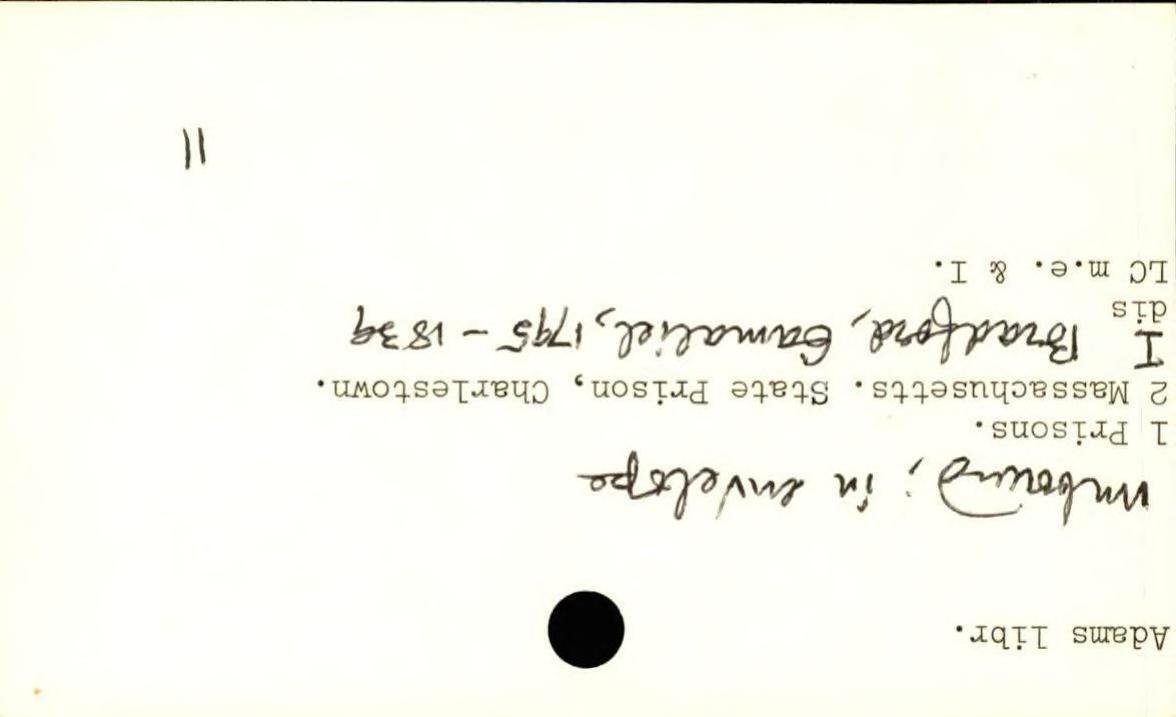 Adams libr.
unbound; in envelope
1 Prisons.
2 Massachusetts. State Prison, Charlestown.
I Bradford, Gamaliel, 1795-1839
dis
LC m.e. & I.
11